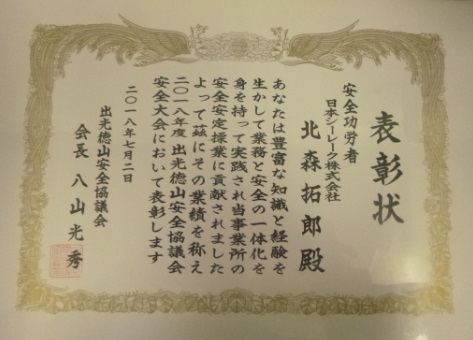 表彰状
安全功労者
日本シーレーク株式会社
北森拓郎殿
あなたは豊富な知識と経験を
生かして業務と安全の一体化を
身を持って実践され当事業所の
安全安定操業に貢献されました
よって茲にその業績を称え
二〇一八年度出光徳山安全協議会
安全大会において表彰します
二〇一八年七月二日
出光徳山安全協議会
会長八山光秀